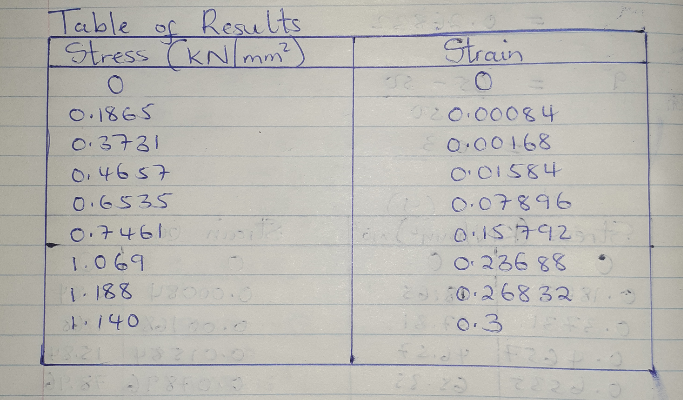 Table of Results
Stress (KN/mm²) Strain
0 0
0.1865 0.00084
0.3731 0.00168
0.4657 0.01584
0.6535 0.07896
0.7461 0.15792
1.069 0.23688
1.188 0.26832
1.140 0.3